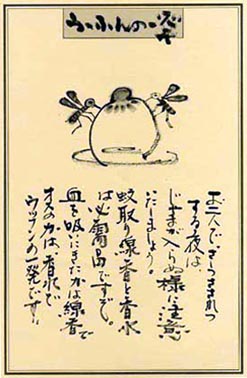 うふんの一発
お二人で、
する夜は、
じゃまが入らぬ様に注意
いたしましょう。
蚊取り線香と香水
は必需品ですぞ。
血を吸いにきたかは線香で
オスのカは、香水で
ウッフンの一発です!!